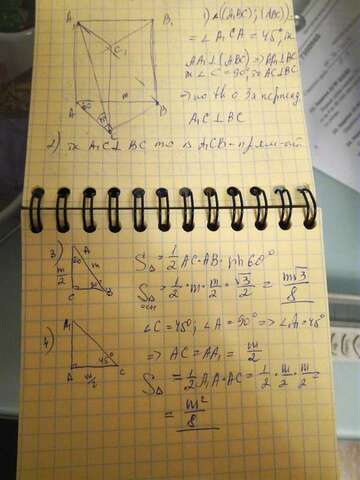 A₁ B₁
C₁
A 60° m B
45°
C
1) ∠(A₁BC); (ABC) =
= ∠A₁CA = 45°, тк
AA₁⊥(ABC) => AA₁⊥BC
m∠C = 90°, то AC⊥BC
=> по тв о 3х перпенд
A₁C⊥BC
2) тк A₁C⊥BC то △A₁CB - прям-ый
3) A
60° m
m/2
C B
S△ = 1/2 AC·AB·sin60°
S△ = 1/2·m·m/2·√3/2 = m√3/8
4) A₁
45°
A m/2 C
∠C = 45°; ∠A = 90° => ∠A₁ = 45°
=> AC = AA₁ = m/2
S△ = 1/2 A₁A·AC = 1/2·m/2·m/2 =
= m²/8